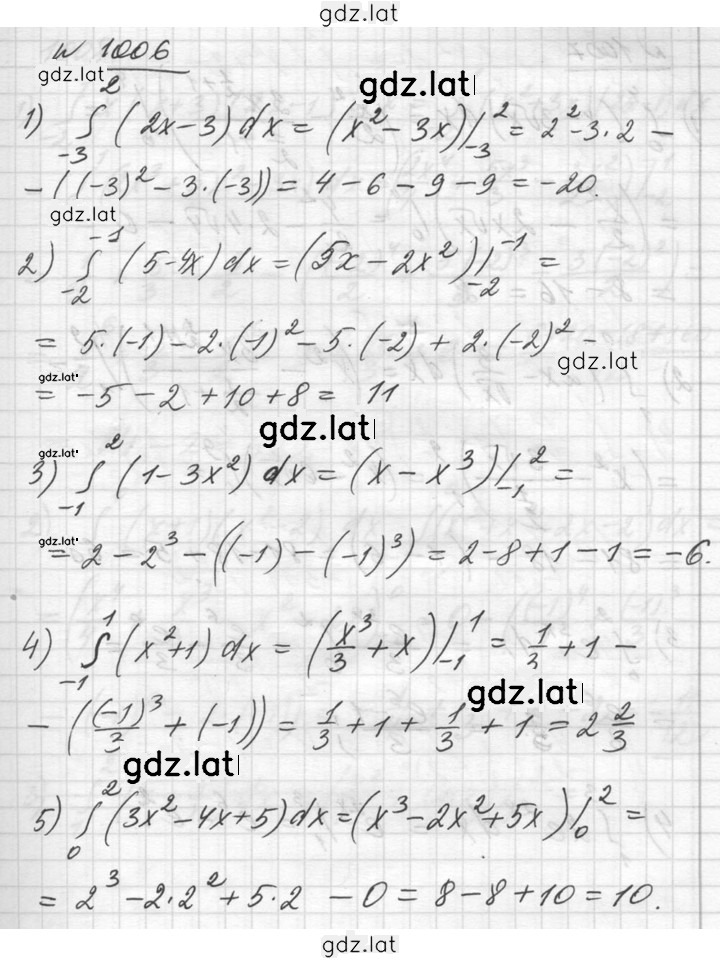 gdz.lat
№ 1006
gdz.lat
gdz.lat
1) ∫₋₃² (2x-3) dx = (x² - 3x)|₋₃² = 2² - 3·2 -
- ((-3)² - 3·(-3)) = 4 - 6 - 9 - 9 = -20.
gdz.lat
2) ∫₋₂⁻¹ (5-4x) dx = (5x - 2x²)|₋₂⁻¹ =
= 5·(-1) - 2·(-1)² - 5·(-2) + 2·(-2)² -
gdz.lat
gdz.lat
= -5 - 2 + 10 + 8 = 11
gdz.lat
gdz.lat
3) ∫₋₁² (1 - 3x²) dx = (x - x³)|₋₁² =
gdz.lat
= 2 - 2³ - ((-1) - (-1)³) = 2 - 8 + 1 - 1 = -6.
4) ∫₋₁¹ (x²+1) dx = (x³/3 + x)|₋₁¹ = 1/3 + 1 -
gdz.lat
- ((-1)³/3 + (-1)) = 1/3 + 1 + 1/3 + 1 = 2 2/3
gdz.lat
5) ∫₀² (3x² - 4x + 5) dx = (x³ - 2x² + 5x)|₀² =
= 2³ - 2·2² + 5·2 - 0 = 8 - 8 + 10 = 10.
gdz.lat